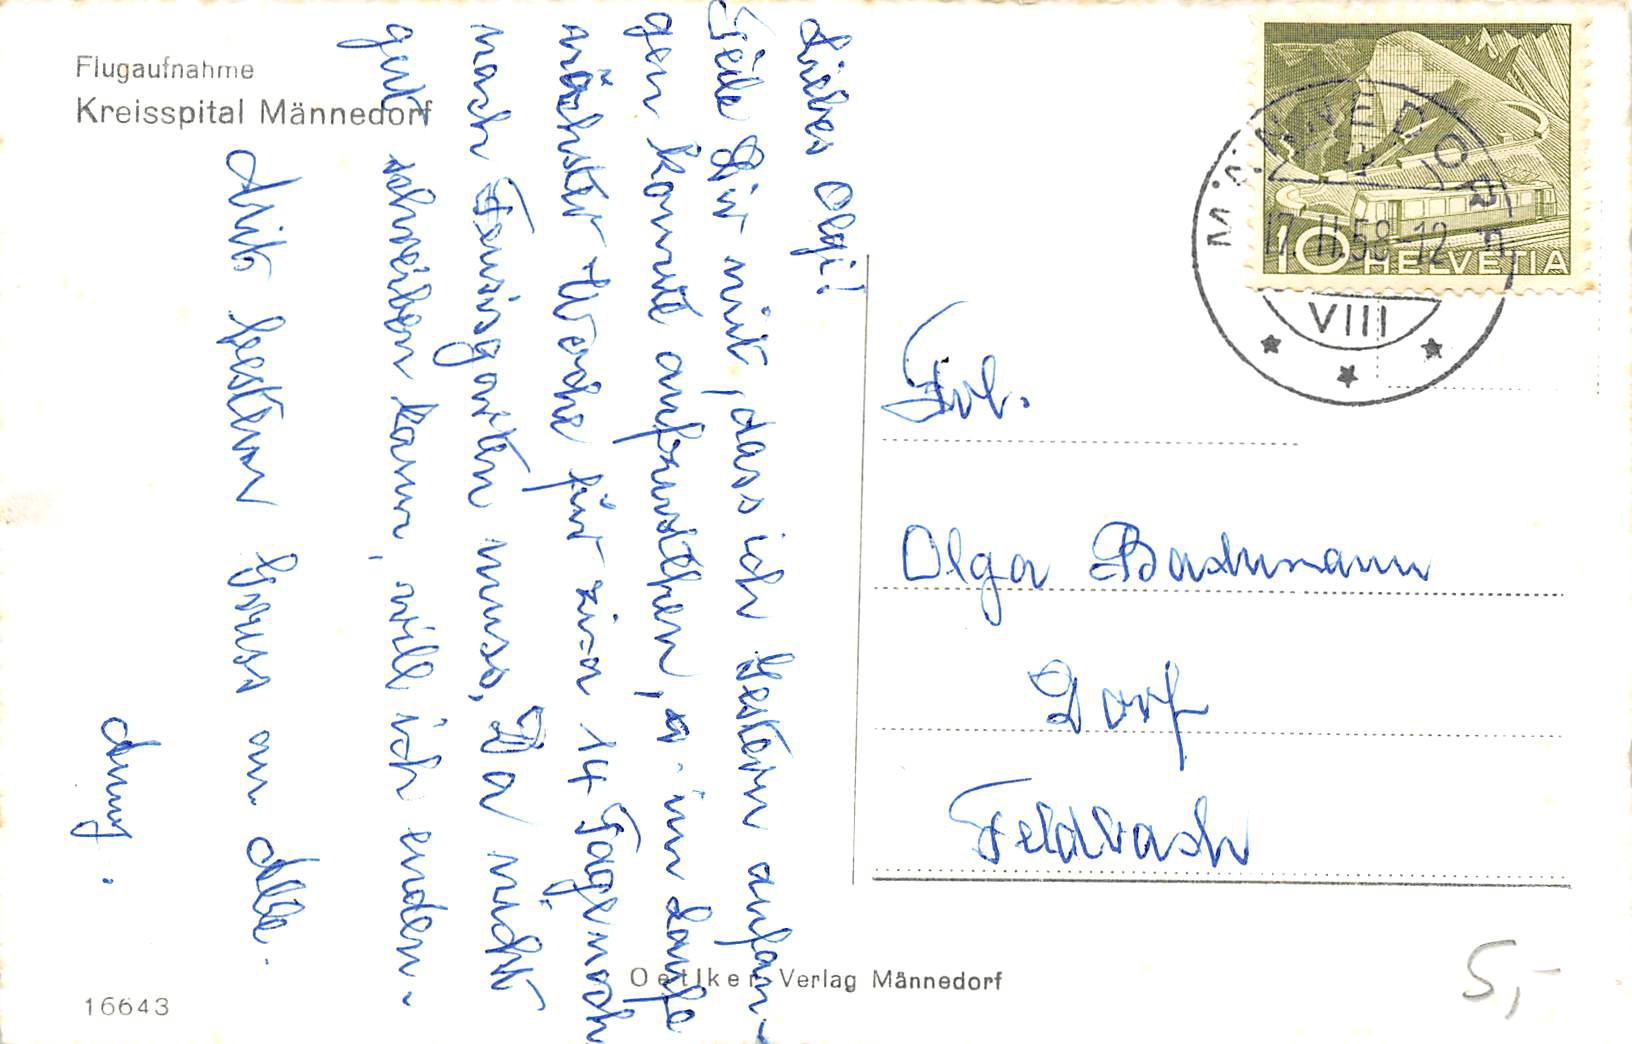 Flugaufnahme
Kreisspital Männedorf
Liebes Olgi!
Teile Dir mit, dass ich Gestern anfan-
gen konnte aufzustehen, u. im Laufe
nächster Woche für zirka 14 Tage noch
nach muss. Da nicht
gut schreiben kann, will ich enden.
Mit bestem Gruss an Alle.
HELVETIA
10
MÄNNEDORF
17.II.58-12
VIII
Frl.
Olga Bachmann
Dorf
Feldbach
Oetiker Verlag Männedorf
16643
5,-